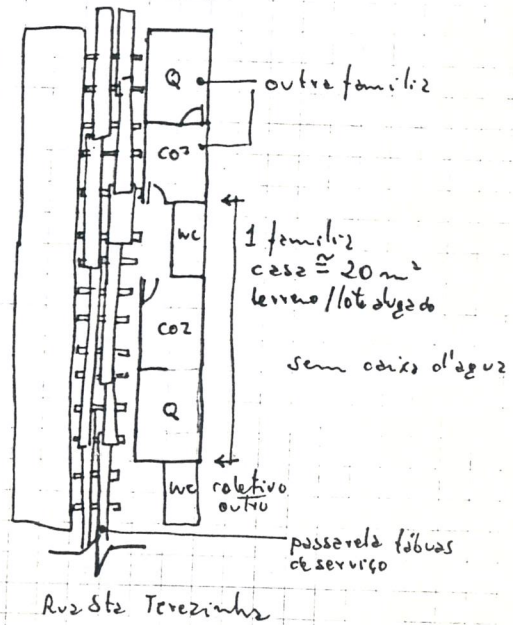 Q
outra familia
COZ
WC
1 familia
casa ≅ 20 m²
terreno/lote alugado
COZ
sem caixa d'agua
Q
WC coletivo
outro
passarela tábuas
de serviço
Rua Sta Terezinha